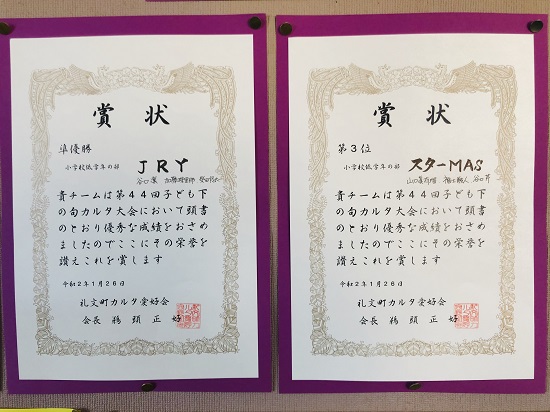 賞状
準優勝
小学校低学年の部
JRY
貴チームは第44回子ども下
の句カルタ大会において頭書
のとおり優秀な成績をおさめ
ましたのでここにその栄誉を
讃えこれを賞します
令和2年1月26日
礼文町カルタ愛好会
会長 鵜頭正好
賞状
第3位
小学校低学年の部
スターMAS
貴チームは第44回子ども下
の句カルタ大会において頭書
のとおり優秀な成績をおさめ
ましたのでここにその栄誉を
讃えこれを賞します
令和2年1月26日
礼文町カルタ愛好会
会長 鵜頭正好